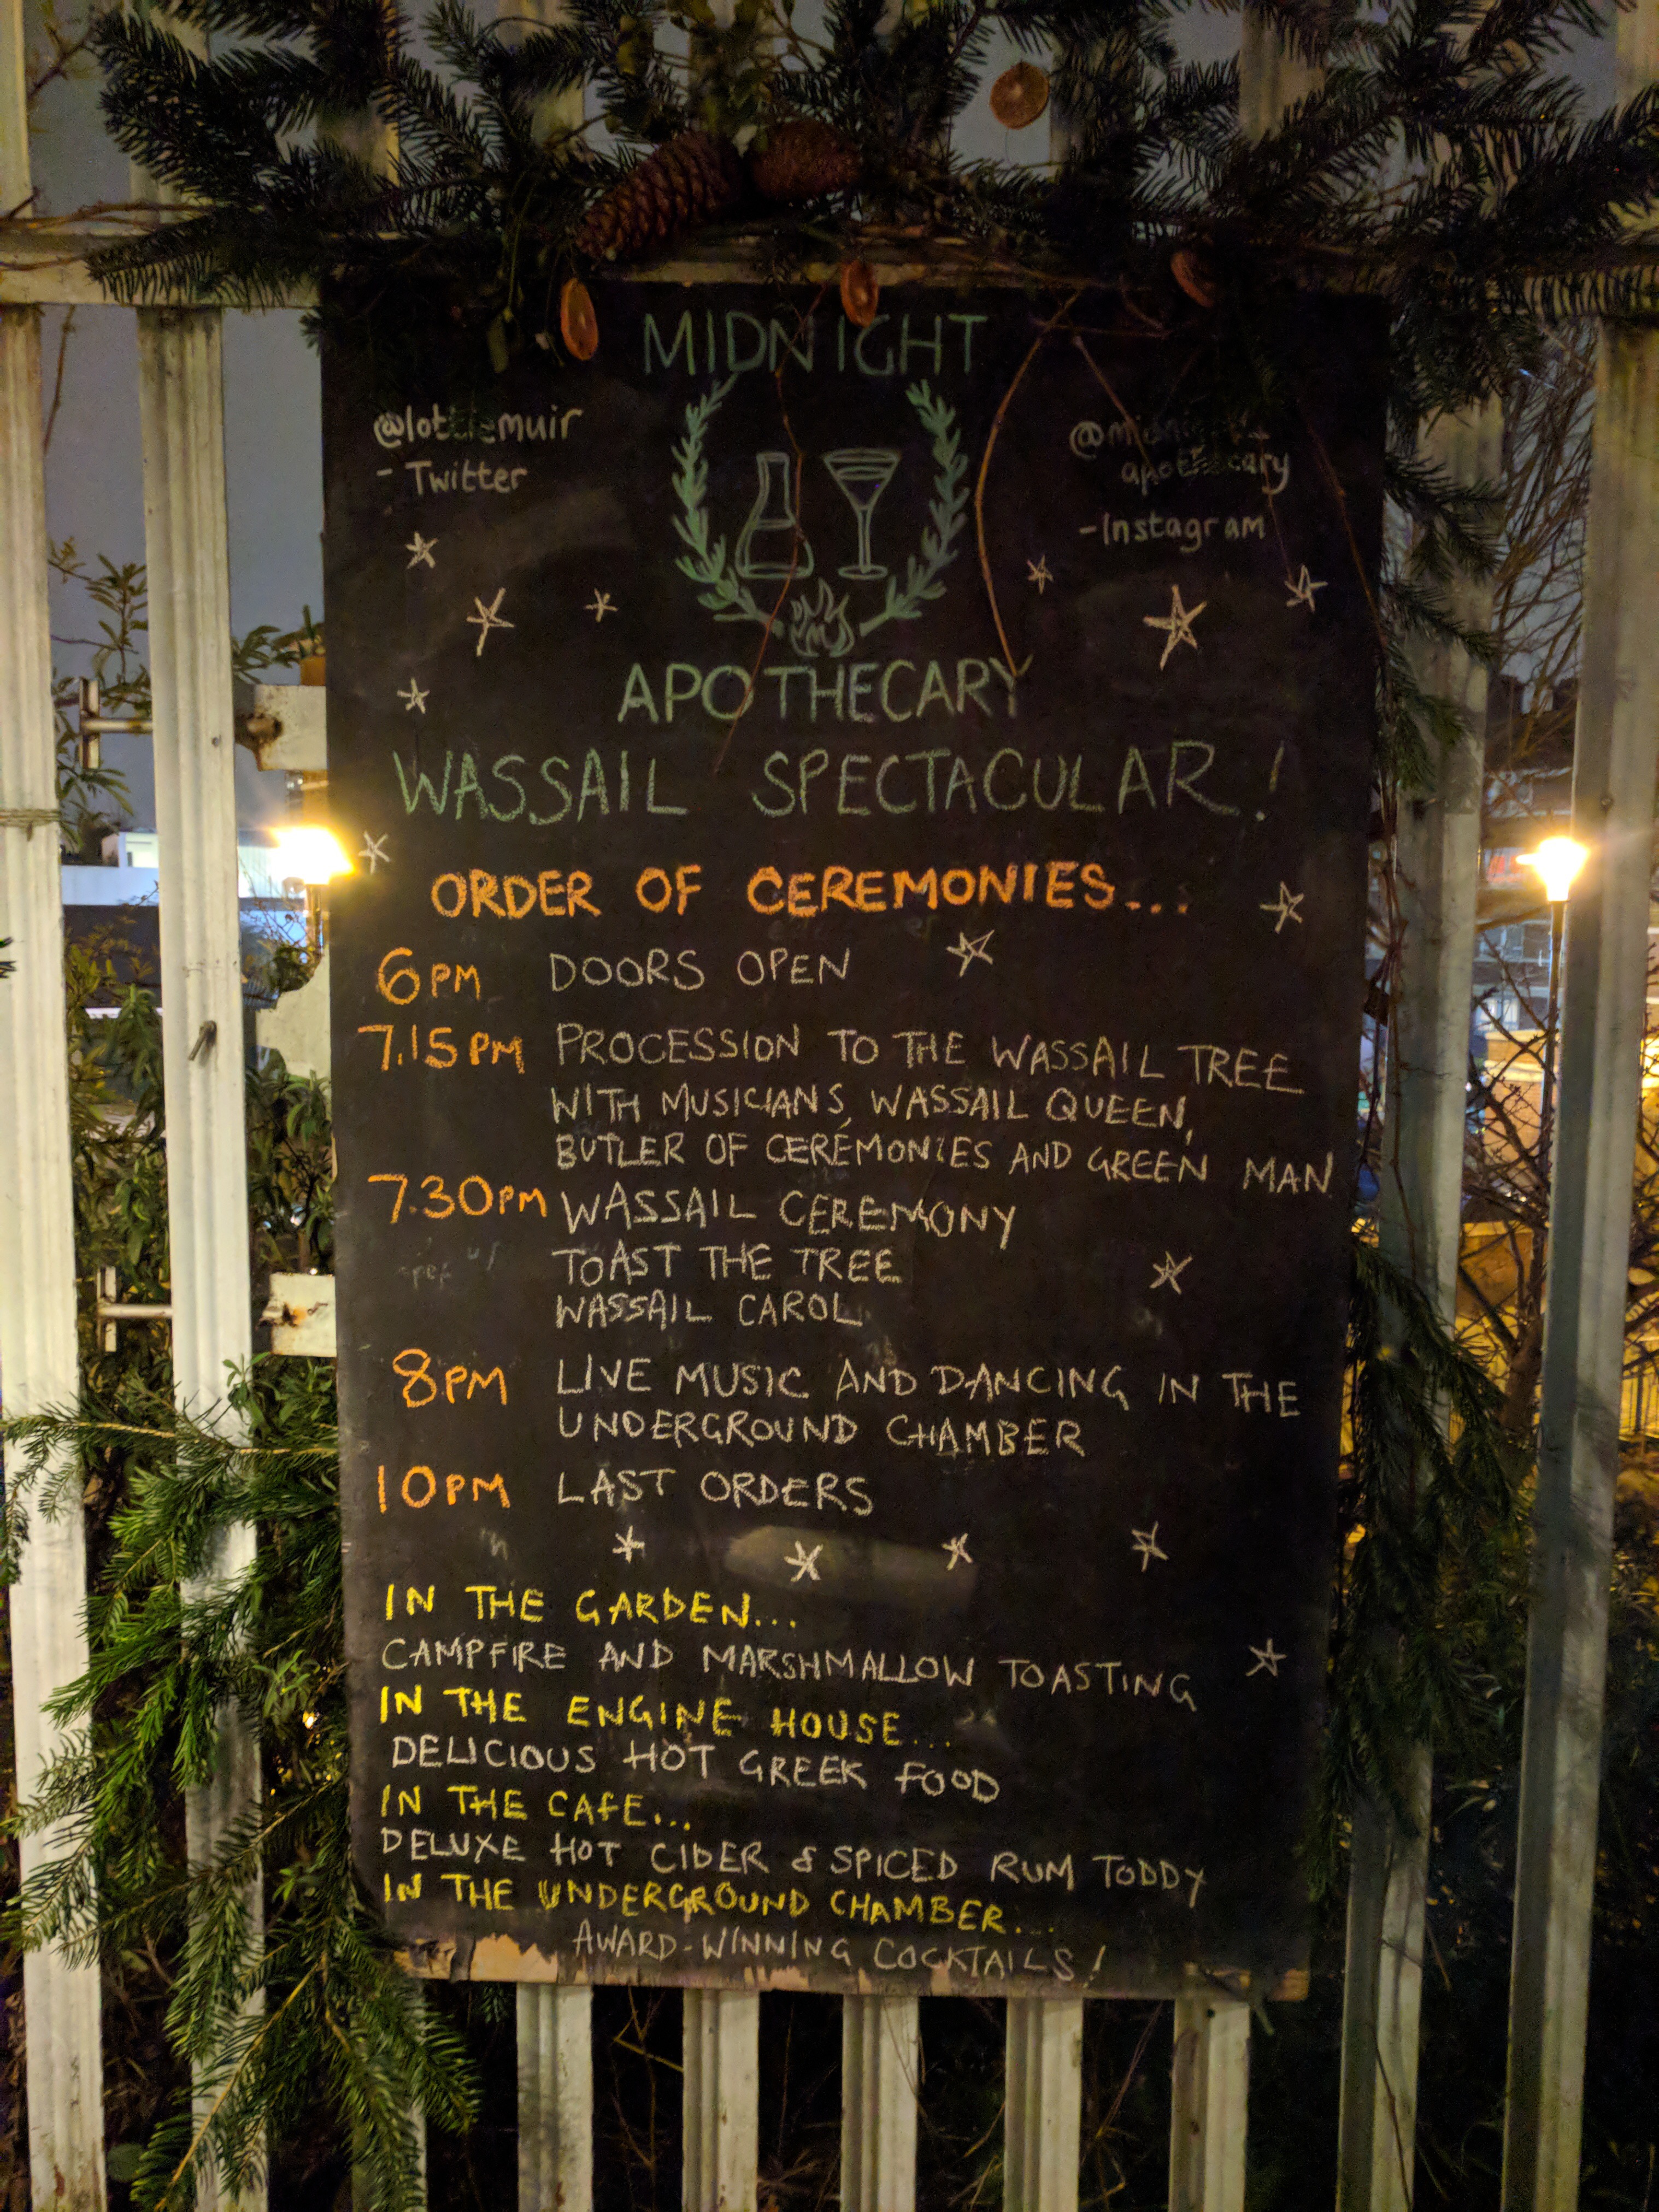 MIDNIGHT
@lottiemuir
- Twitter
@midnight_
apothecary
-Instagram
APOTHECARY
WASSAIL SPECTACULAR!
ORDER OF CEREMONIES...
6PM DOORS OPEN
7.15PM PROCESSION TO THE WASSAIL TREE
WITH MUSICIANS, WASSAIL QUEEN,
BUTLER OF CEREMONIES AND GREEN MAN
7.30PM WASSAIL CEREMONY
TOAST THE TREE
WASSAIL CAROL
8PM LIVE MUSIC AND DANCING IN THE
UNDERGROUND CHAMBER
10PM LAST ORDERS
IN THE GARDEN...
CAMPFIRE AND MARSHMALLOW TOASTING
IN THE ENGINE HOUSE...
DELICIOUS HOT GREEK FOOD
IN THE CAFE...
DELUXE HOT CIDER & SPICED RUM TODDY
IN THE UNDERGROUND CHAMBER...
AWARD-WINNING COCKTAILS!